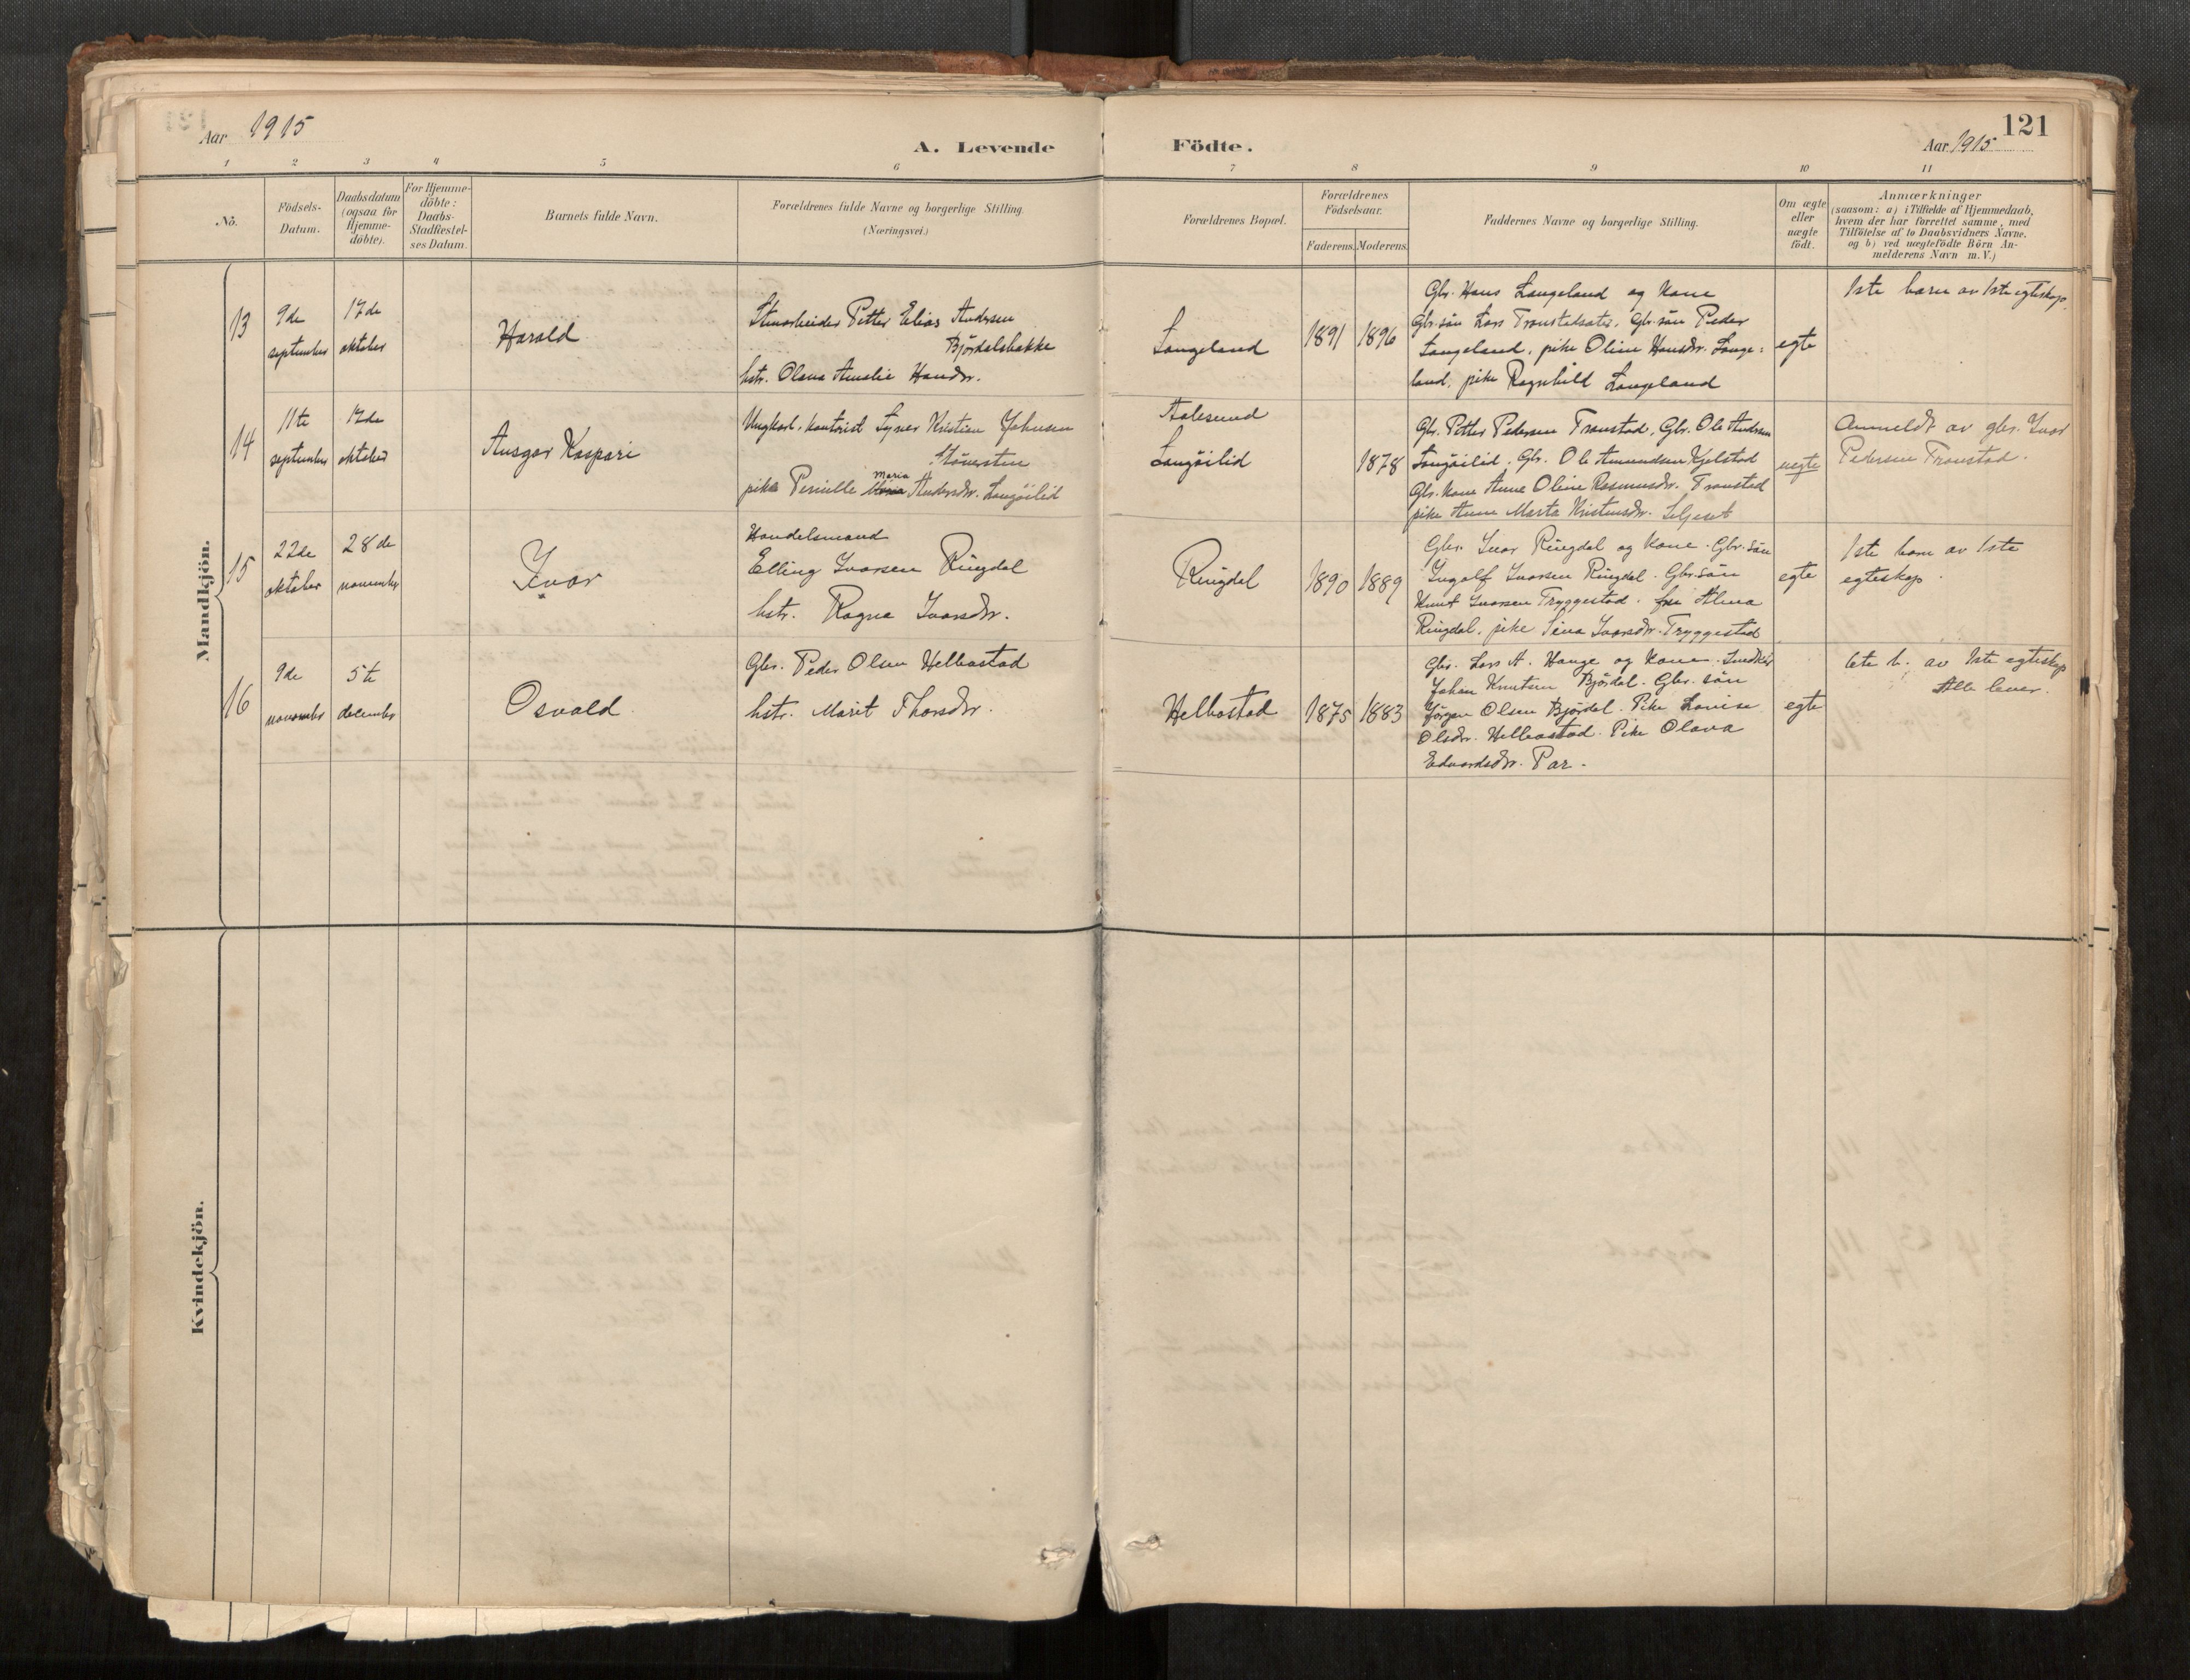 Aar 1915
A. Levende
Födte.
121
Aar 1915
1 2 3 4 5 6 7 8 9 10 11
No.
Födsels-
Datum.
Daabsdatum
(ogsaa for
Hjemme-
döbte).
For Hjemme-
döbte:
Daabs-
Stadfæstel-
ses Datum.
Barnets fulde Navn.
Forældrenes fulde Navne og borgerlige Stilling.
(Næringsvei.)
Forældrenes Bopæl.
Forældrenes
Födselsaar.
Faderens.
Moderens.
Faddernes Navne og borgerlige Stilling.
Om ægte
eller
uægte
födt.
Anmærkninger
(saasom: a) i Tilfælde af Hjemmedaab,
hvem der har forrettet samme, med
Tilföielse af to Daabsvidners Navne.
og b) ved uægtefödte Börn An-
melderens Navn m. V.)
Mandkjön.
13
9de
september
17de
oktober
Harald
Stenarbeider Petter Elias Andrsen
Bjørdalsbakke
hstr. Olava Amalie Hansdr.
Langeland
1891
1896
Gbr. Hans Langeland og Kone
Gbr. sön Lars Gbr. sön Peder
Langeland, pike Oline Hansdr. Lange-
land, pike Ragnhild Langeland
egte
1ste barn av 1ste egteskap.
14
11te
september
17de
oktober
Ansgar Kaspari
Ungkarl, kontorist Syner Kristian Johnsen
pike Pernille Maria Andersdr. Langöilid
Aalesund
Langöilid
1878
Gbr. Petter Pedersen Tronstad, Gbr. Ole Andrsen
Langöilid, Gbr. Ole Amundsen Kjelstad
Gbr. Kone Anne Oline Rasmusdr. Tronstad
pike Anne Marta Kristensdr. Seljeset
uegte
Anmeldt av gbr. Ivar
Pedersen Tronstad.
15
22de
oktober
28de
november
Ivar
Handelsmand
Elling Ivarsen Ringdal
hstr. Ragna Ivarsdr.
Ringdal
1890
1889
Gbr. Ivar Ringdal og Kone. Gbr. sön
Ingolf Ivarsen Ringdal. Gbr. sön
Knut Ivarsen Tryggestad. frk Alma
Ringdal, pike Sina Ivarsdr. Tryggestad
egte
1ste barn av 1ste
egteskap.
16
9de
november
5te
december
Osvald
Gbr. Peder Olsen Helbostad
hstr. Marit Thorsdr.
Helbostad
1875
1883
Gbr. Lars A. Hauge og Kone.
Johan Knutsen Björdal. Gbr. sön
Jörgen Olsen Björdal. Pike Lovise
Olsdr. Helbostad. Pike Olava
Edvardsdr. Par.
egte
6te b. av 1ste egteskap
Alle lever.
Kvindekjön.